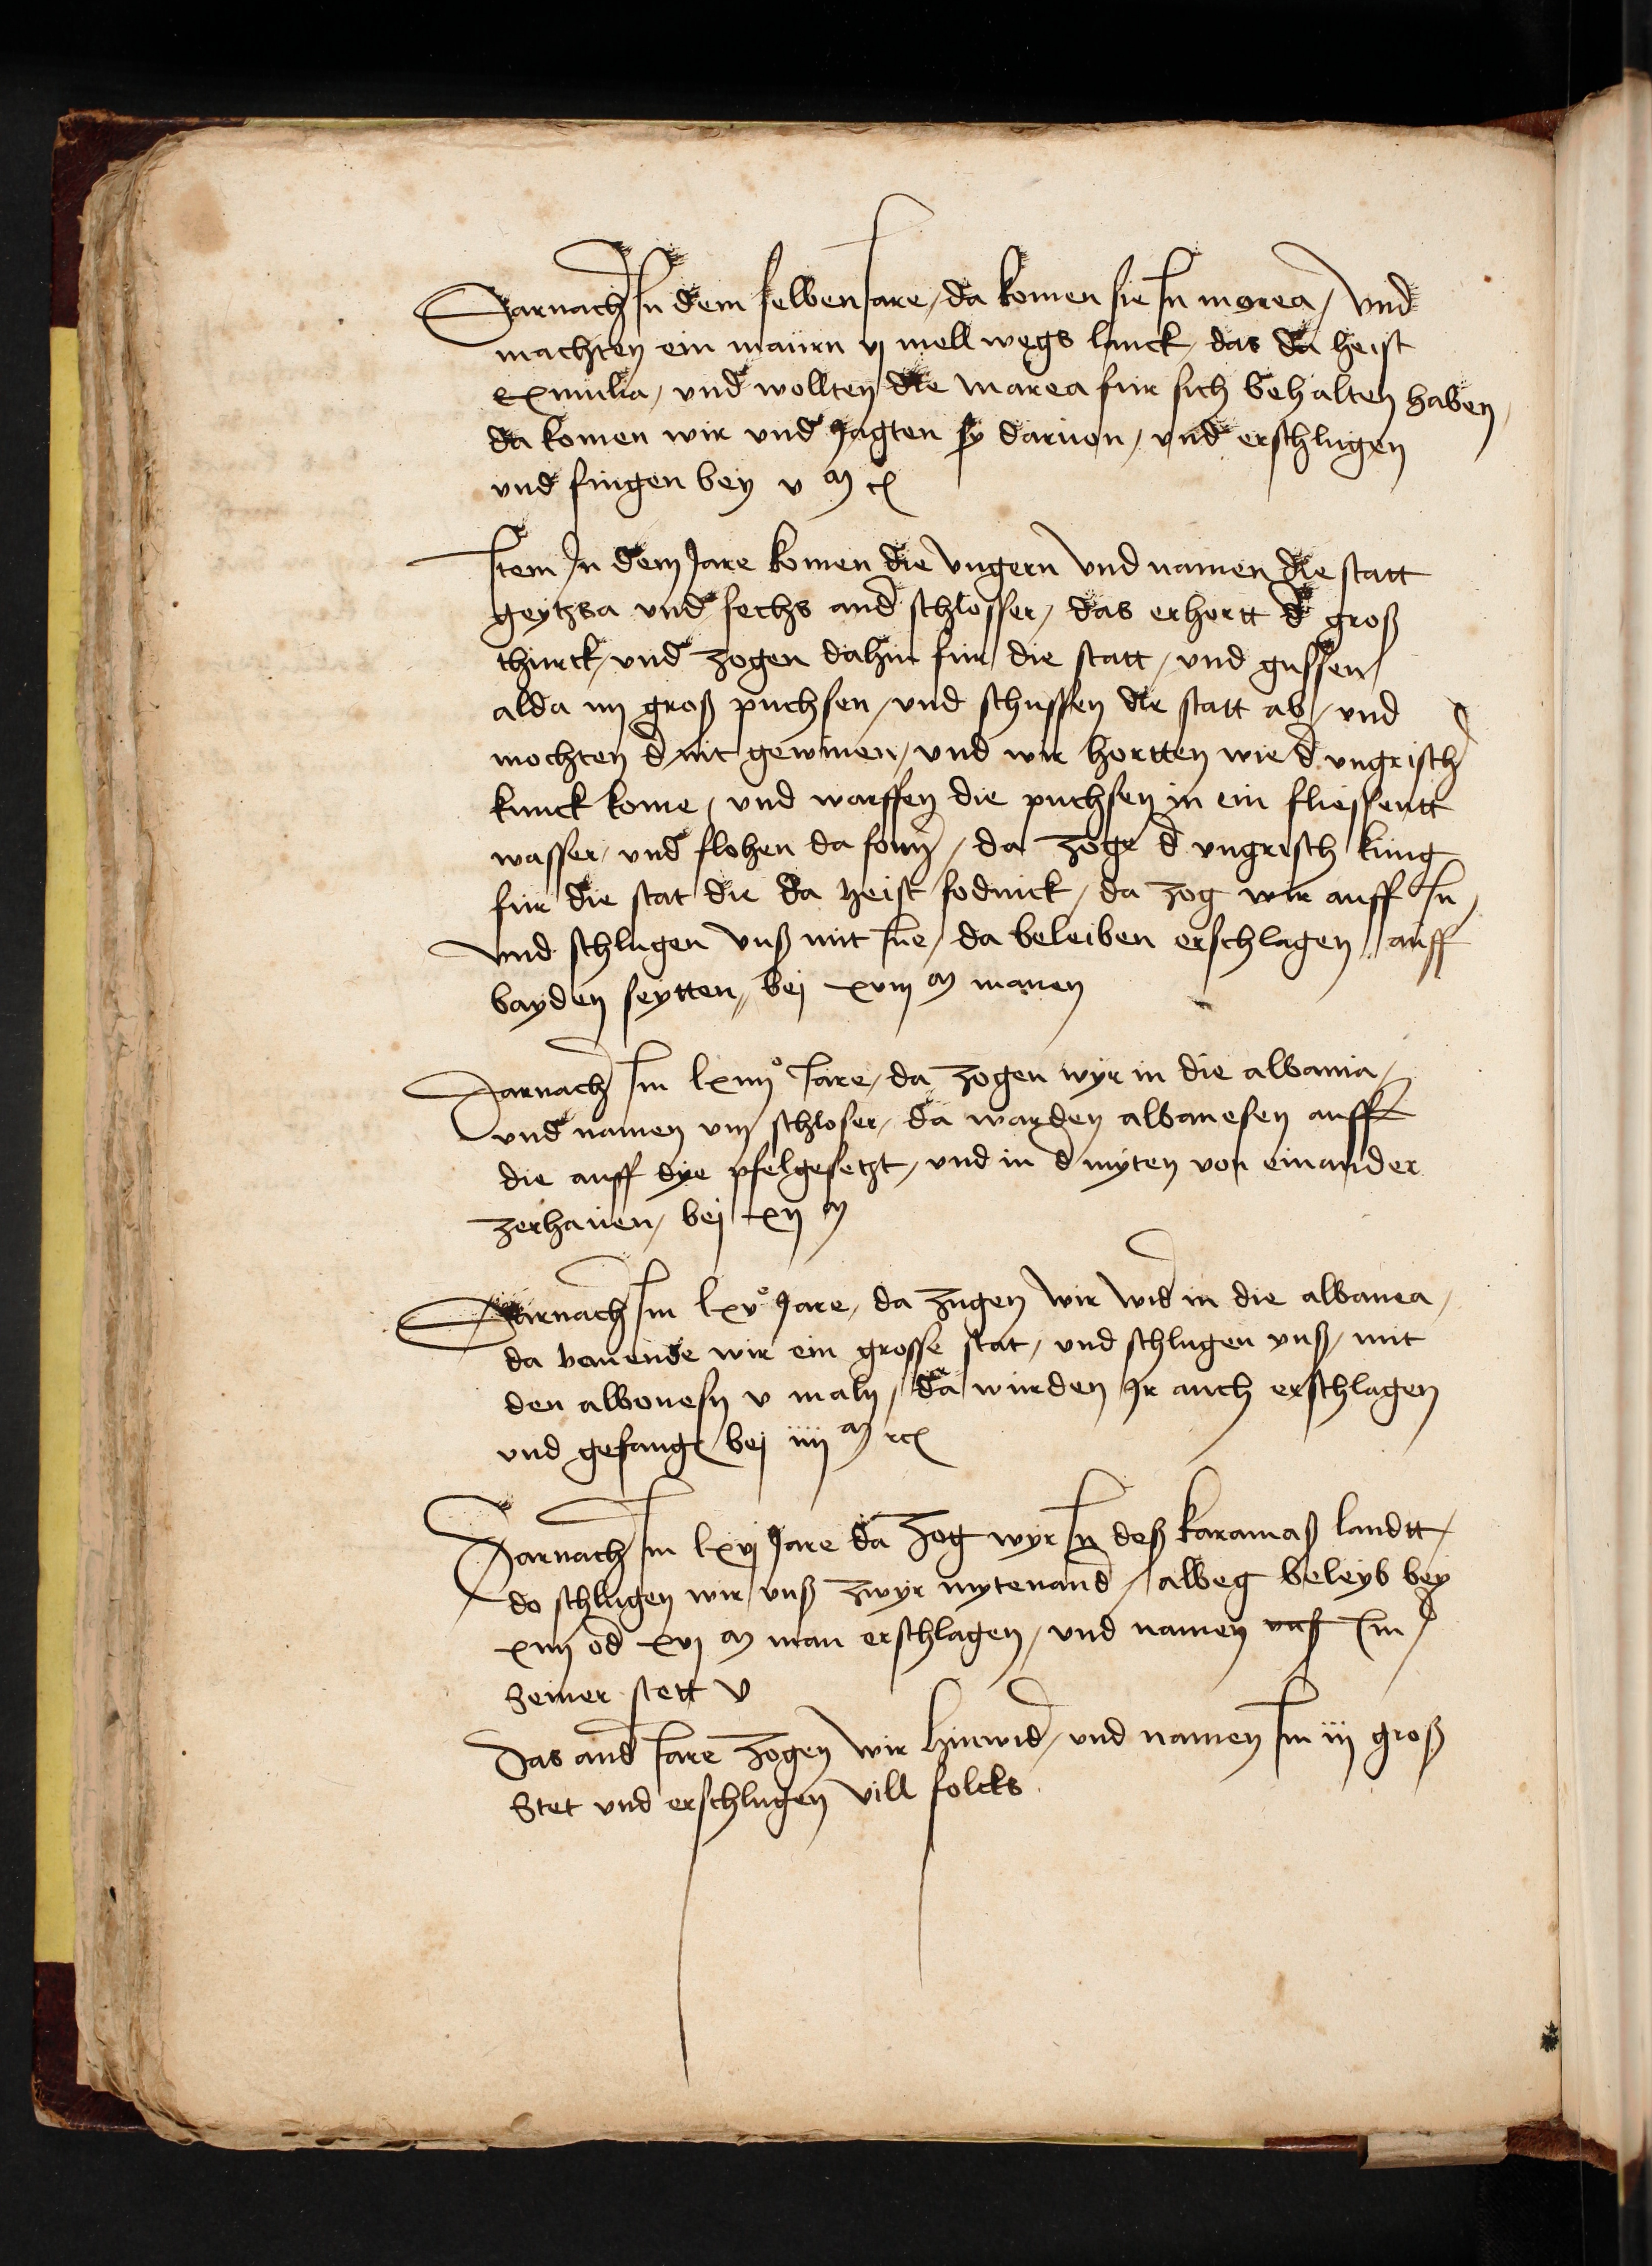 Darnach In dem selben Jare / da komen sie In morea / Vnd
machten ein maurn vj mell wegs lanck / das da heist
exmilia / vnd wollten die marea fur sich behalten haben /
da komen wir vnd Jagten sy daruon / vnd erschlugen
vnd fingen bey v m
Item In dem Jare komen die Vngern Vnd namen die statt
geytzsa vnd sechs and schlosser / das erhort d groß
thurck / vnd zogen dahin fur die statt / vnd gussen
alda iiij groß puchsen / vnd schussen die statt ab / vnd
mochten d nit gewinen / vnd wir hortten wie d vngrisch
kunck kome / vnd warffen die puchsen in ein fliessentt
wasser / vnd flohen da fonn / da zoge d vngrisch kunig
fur die stat die da heist sodnick / da zog wir auff In /
Vnd schlugen Vnß mit Ine / da beleiben erschlagen auff
bayden seytten / bej xviij m manen
Darnach Im lxiiijº Jare / da zogen wyr in die albania /
vnd namen viij schloser / da warden albanesen auff
die auff dye pfel gesetzt / vnd in d myten von einander
zerhauen / bej xij m
Darnach Im lxvº Jare / da zugen Wir Wid in die albanea /
da bauende wir ein grosse stat / vnd schlugen vnß / mit
den albonesn v maln / da wurden Ir auch erschlagen
vnd gefang bej iiij m
Darnach Im lxvj Jare da zog wyr In deß karamaß landtt /
do schlugen wir vnß zwyr mytenand / albeg beleyb bey
xiiij od xvj m man erschlagen / vnd namen Im
seiner stett v
Das and Jare zogen Wir hinwid / vnd namen Im iij groß
Stet vnd erschlugen Vill folcks